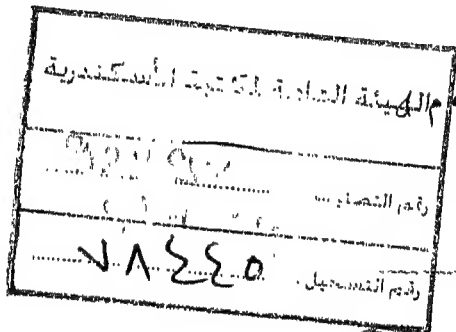 الهيئة العامة لمكتبة الأسكندرية
رقم التصنيف
رقم التسجيل ٧٨٤٤٥